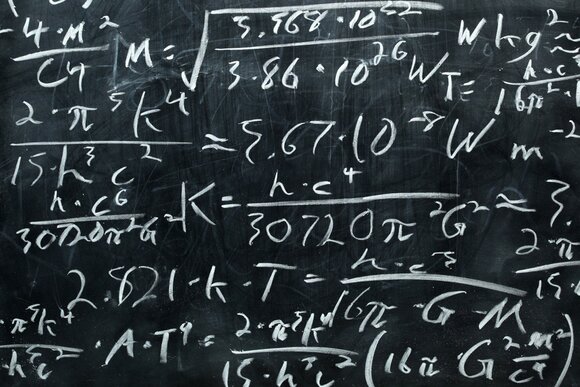 4·M² / C4 | M = √(3.568·10²² / 3.86·10²⁶ W) W kg² ≈
T = h·c / 16π²·
2·π⁵k⁴ / 15·h³c² ≈ 5.67·10⁻⁸ W m⁻²
h·c⁶ / 30720π²G² K = h·c⁴ / 30720π²G² ≈ 3.
2.821·k·T = h·c³ / 16π·G·M
2·π / 15·
·π⁵k⁴ / ·h³c² ·A·T⁹ = 2·π⁵k⁴ / 15·h³c² (16π G² m² / c²